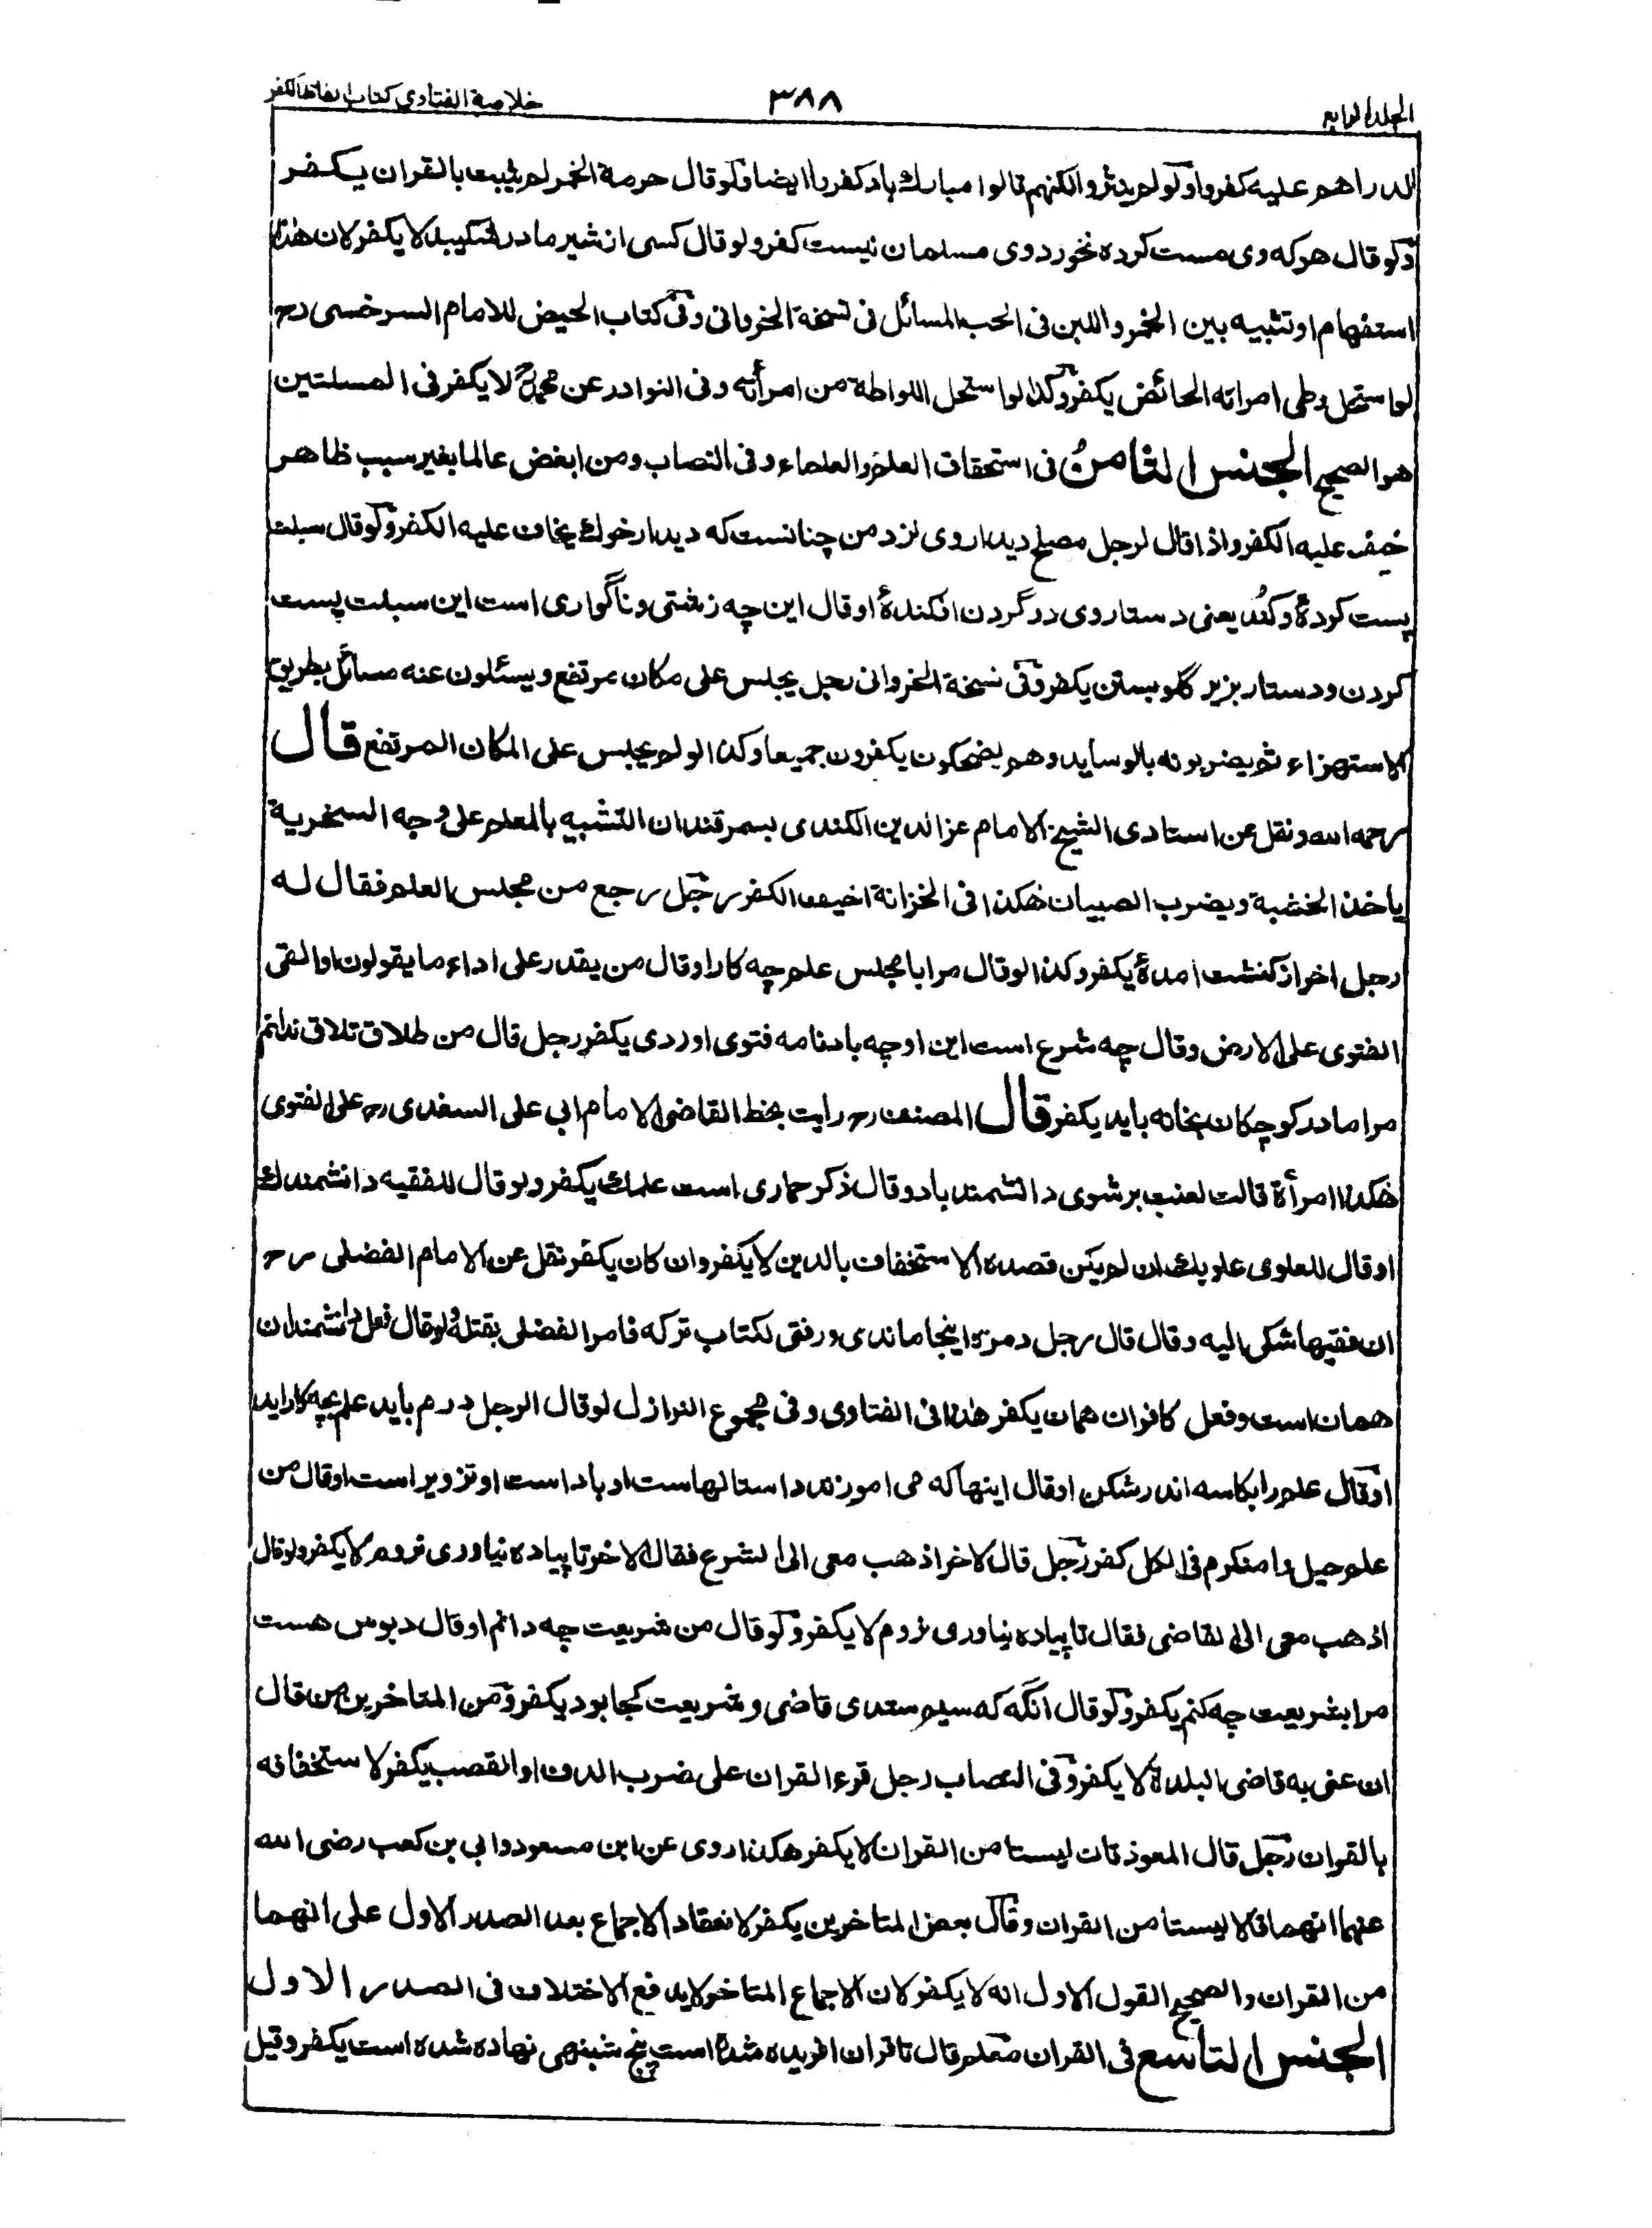 الجلد الرابع
٣٨٨
خلاصة الفتاوى كتاب الفاظ الكفر
الدراهم عليه كفروا ولو لم ينثروا لكنهم قالوا مبارك باد كفروا ايضا ولو قال حرمة الخمر لم يثبت بالقران يكفر
ولو قال هركه وى مست كرده نخورد وى مسلمان نيست كفر ولو قال كسى از شير مادر شكيبد لا يكفر لان هذا
استفهام او تشبيه بين الخمر واللبن فى الحب المسائل فى نسخة الخروانى وفى كتاب الحيض للامام السرخسى رح
لو استحل وطى امراته الحائض يكفر وكذا لو استحل اللواطة من امرأته وفى النوادر عن محمد رح لا يكفر فى المسلتين
هو الصحيح الجنس الثامن فى استحقاق العلم والعلماء وفى النصاب ومن ابغض عالما بغير سبب ظاهر
خيف عليه الكفر واذا قال لرجل مصلح ديدار وى نزد من چنانست كه ديدار خوك يخاف عليه الكفر ولو قال سبلت
پست كردۀ وكند يعنى دستار وى در گردن افكندۀ او قال اين چه زشتى وناگوارى است اين سبلت پست
كردن ودستار بزير گلو بستن يكفر وفى نسخة الخروانى رجل يجلس على مكان مرتفع ويسئلون عنه مسائل بطريق
الاستهزاء ثم يضربونه بالوسايد وهم يضحكون يكفرون جميعا وكذا لو لم يجلس على المكان المرتفع قال
رحمه الله ونقل عن استادى الشيخ الامام عز الدين الكندى بسمرقند ان التشبيه بالمعلم على وجه السخرية
ياخذ الخشبة ويضرب الصبيان هكذا فى الخزانة اخيف الكفر رجل رجع من مجلس العلم فقال له
رجل اخر از كنشت امدۀ يكفر وكذا لو قال مرا با مجلس علم چه كار او قال من يقدر على اداء ما يقولون او القى
الفتوى على الارض وقال چه شرع است اين او چه بادنامه فتوى اوردى يكفر رجل قال من طلاق تلاق ندانم
مرا مادر كوچكان بخانه بايد يكفر قال المصنف رح رايت بخط القاضى الامام ابى على السغدى رح على الفتوى
هكذا امرأة قالت لعنت بر شوى دانشمند باد وقال ذكر حمارى است علمك يكفر ولو قال للفقيه دانشمندك
او قال للعلوى علويك ان لم يكن قصده الاستخفاف بالدين لا يكفر وان كان يكفر نقل عن الامام الفضلى رح
ان فقيها شكى اليه وقال قال رجل دمره اينجا ماندى ورفتى لكتاب تركه فامر الفضلى بقتله ولو قال فعل دانشمندان
همان است وفعل كافران همان يكفر هذا فى الفتاوى وفى مجموع النوازل لو قال الرجل درم بايد علم بچه كار ايد
او قال علم را بكاسه اندر شكن او قال اينها كه مى اموزند داستانهاست او باد است او تزوير است او قال من
علم حيل را منكرم فى الكل كفر رجل قال لاخر اذهب معى الى الشرع فقال الاخر تا پياده نياورى نروم لا يكفر ولو قال
اذهب معى الى القاضى فقال تا پياده نياورى نروم لا يكفر ولو قال من شريعت چه دانم او قال دبوس هست
مرا بشريعت چه كنم يكفر ولو قال انگه كه سيم ستدى قاضى وشريعت كجا بود يكفر ومن المتاخرين من قال
ان عنى به قاضى البلدة لا يكفر وفى النصاب رجل قرء القران على ضرب الدف او القصب يكفر لاستخفافه
بالقران رجل قال المعوذتان ليستا من القران لا يكفر هكذا روى عن ابن مسعود وابي بن كعب رضى الله
عنهما انهما قالا ليستا من القران وقال بعض المتاخرين يكفر لانعقاد الاجماع بعد الصدر الاول على انهما
من القران والصحيح القول الاول انه لا يكفر لان الاجماع المتاخر لا يدفع الاختلاف فى الصدر الاول
الجنس التاسع فى القران معلم قال تا قران افريده شده است پنج شبنهى نهاده شده است يكفر وقيل